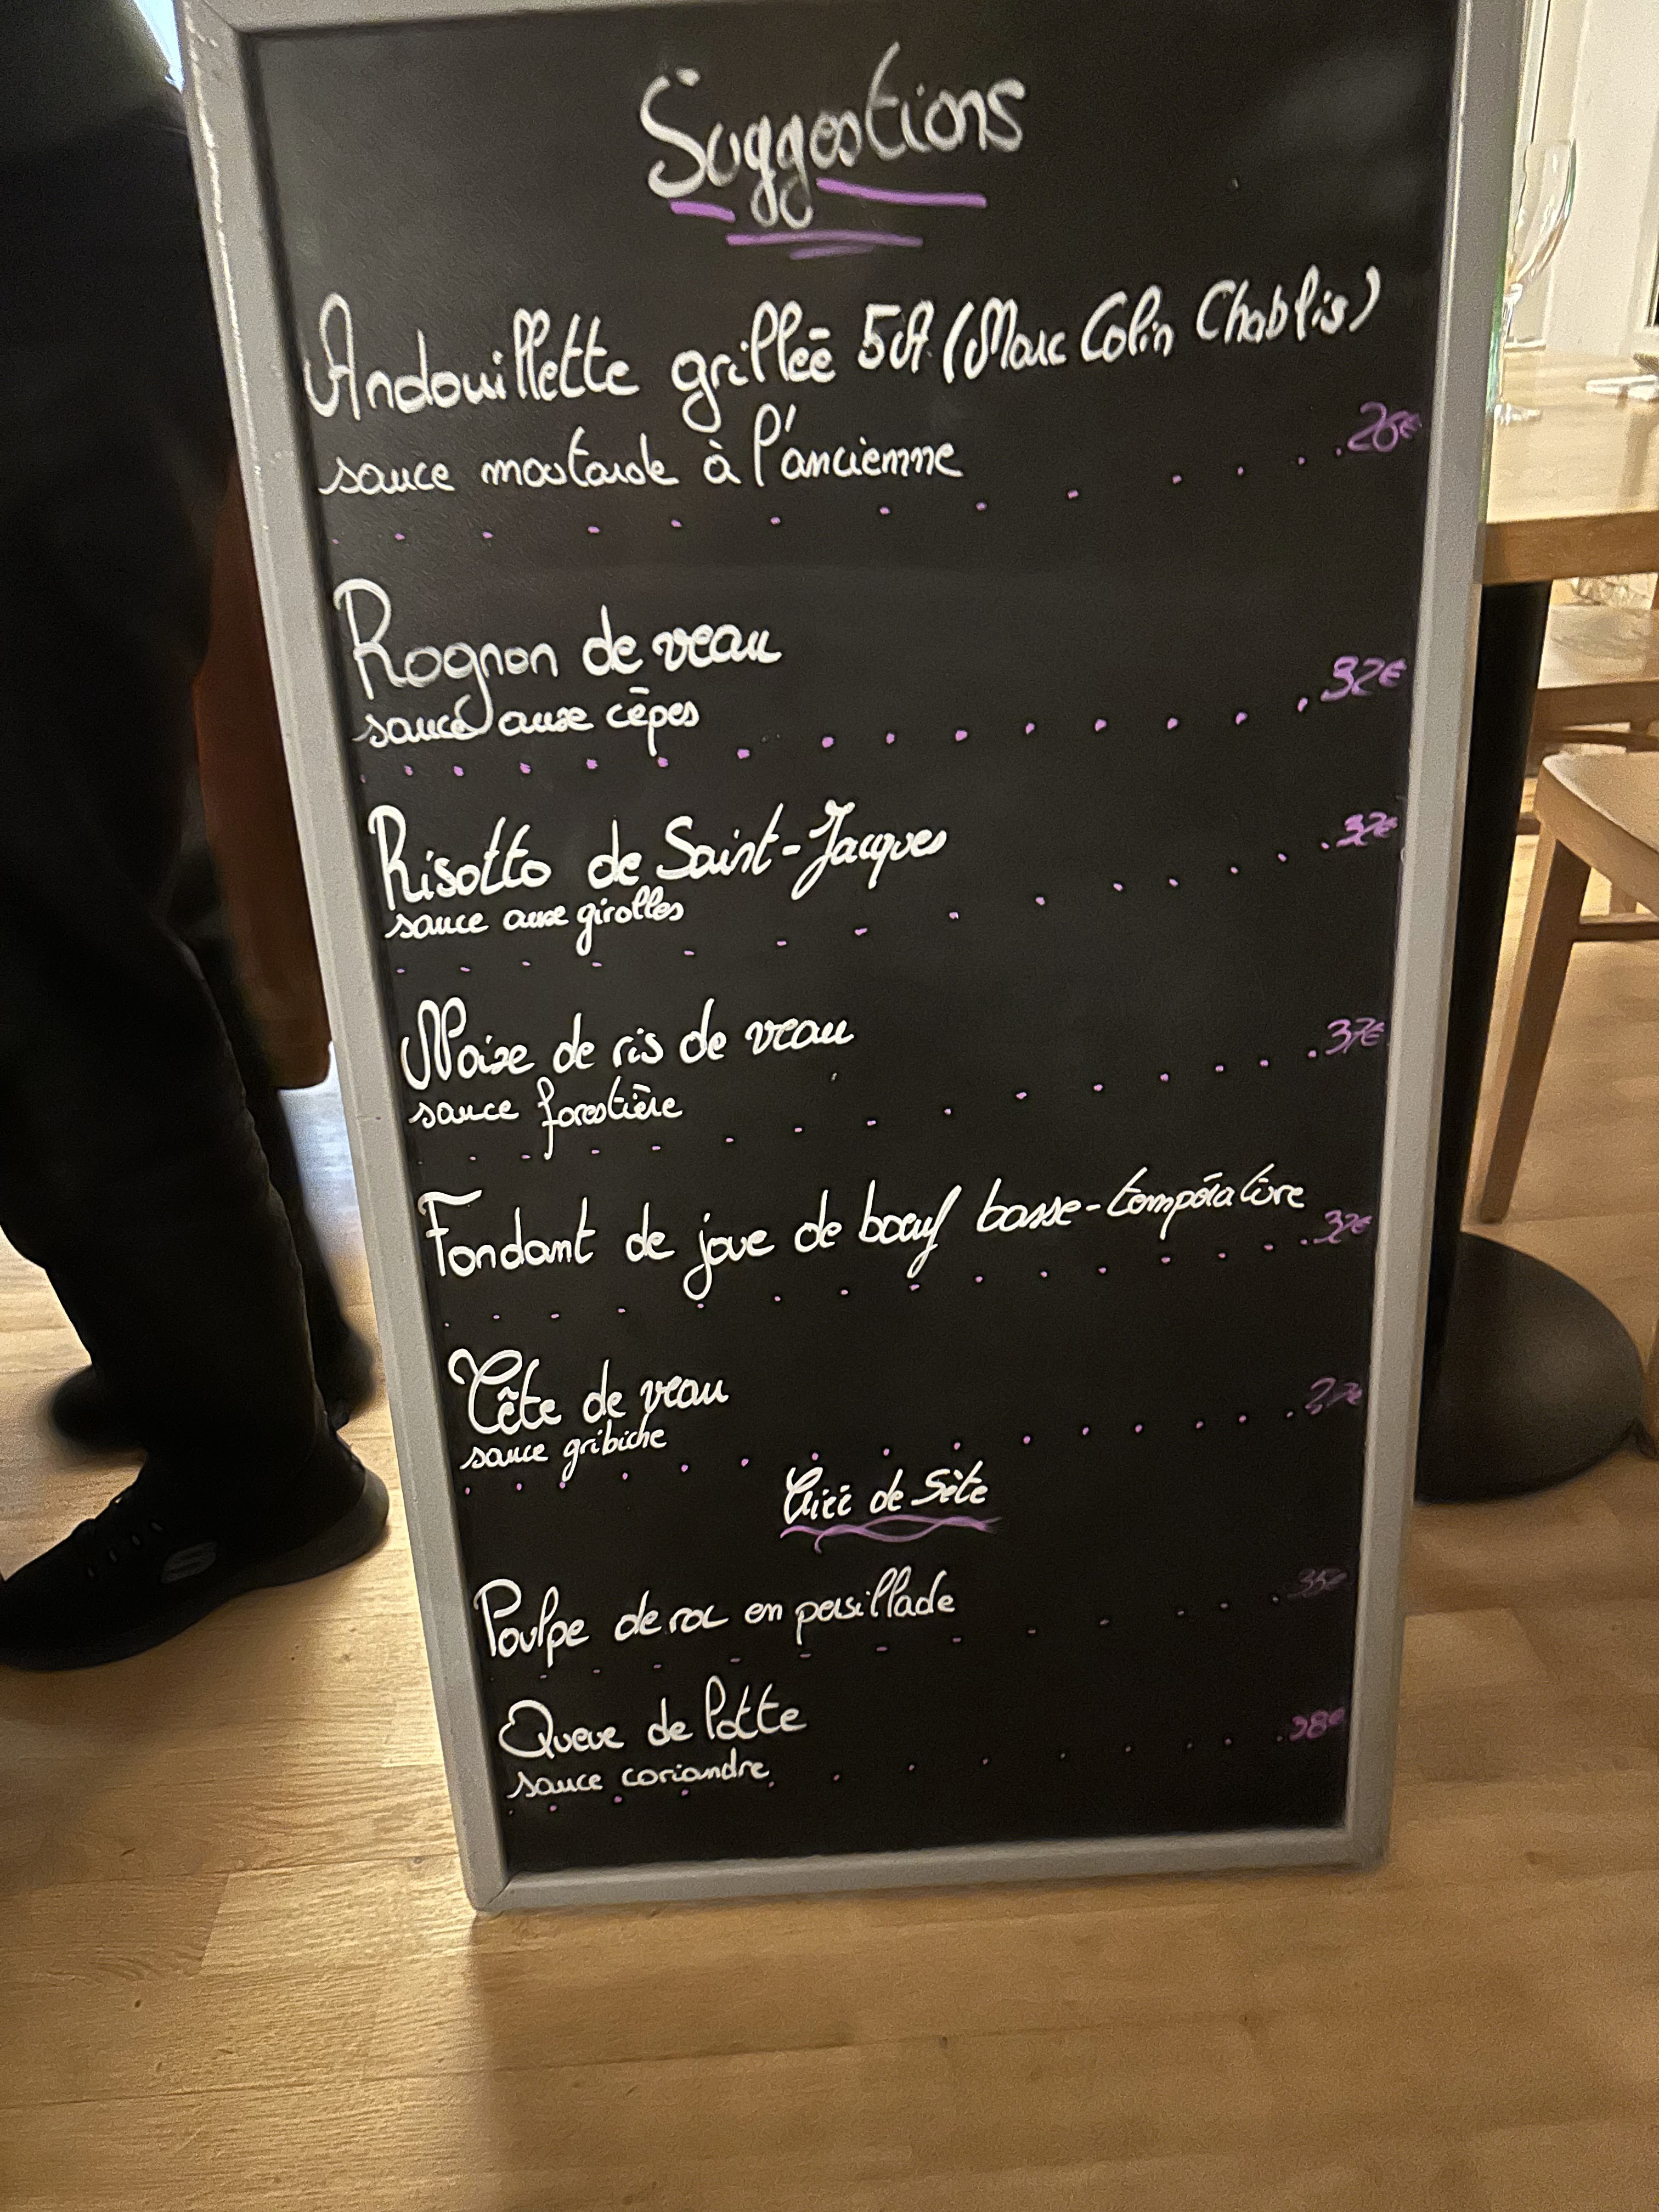 Suggestions
Andouillette grillée 5A (Marc Colin Chablis)
sauce moutarde à l'ancienne
26€
Rognon de veau
sauce aux cèpes
32€
Risotto de Saint-Jacques
32€
sauce aux girolles
Noix de ris de veau
37€
sauce forestière
Fondant de joue de bœuf basse-température
32€
Tête de veau
sauce gribiche
Criée de Sète
Poulpe de roc en persillade
35€
Queue de lotte
38€
sauce coriandre